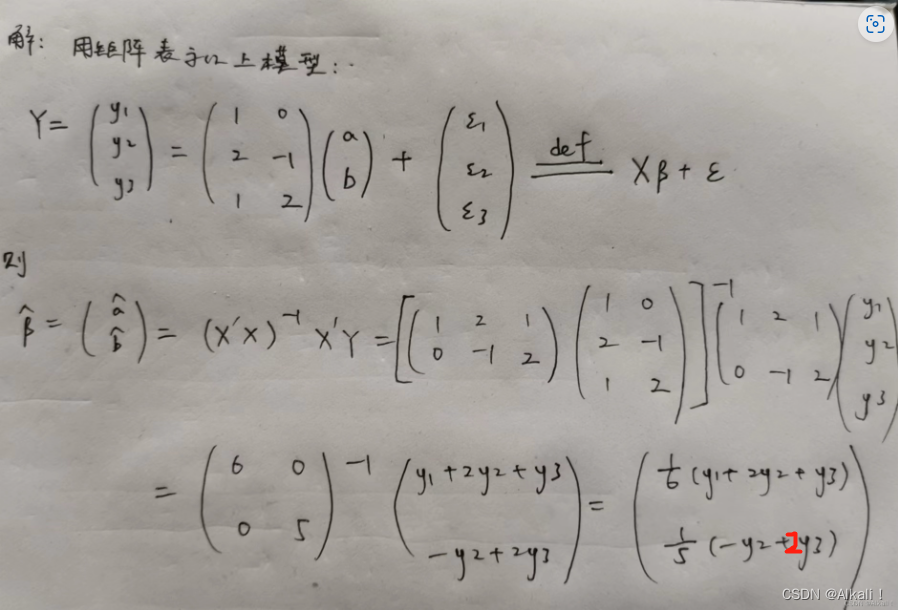 解: 用矩阵表示以上模型:
Y= (y1 y2 y3) = (1 0 2 -1 1 2) (a b) + (ε1 ε2 ε3) def Xβ + ε
则
β̂ = (â b̂) = (X'X)⁻¹ X'Y = [(1 2 1 0 -1 2) (1 0 2 -1 1 2)]⁻¹ (1 2 1 0 -1 2) (y1 y2 y3)
= (6 0 0 5)⁻¹ (y1+2y2+y3 -y2+2y3) = (1/6 (y1+2y2+y3) 1/5 (-y2+2y3))
CSDN @Alkali！